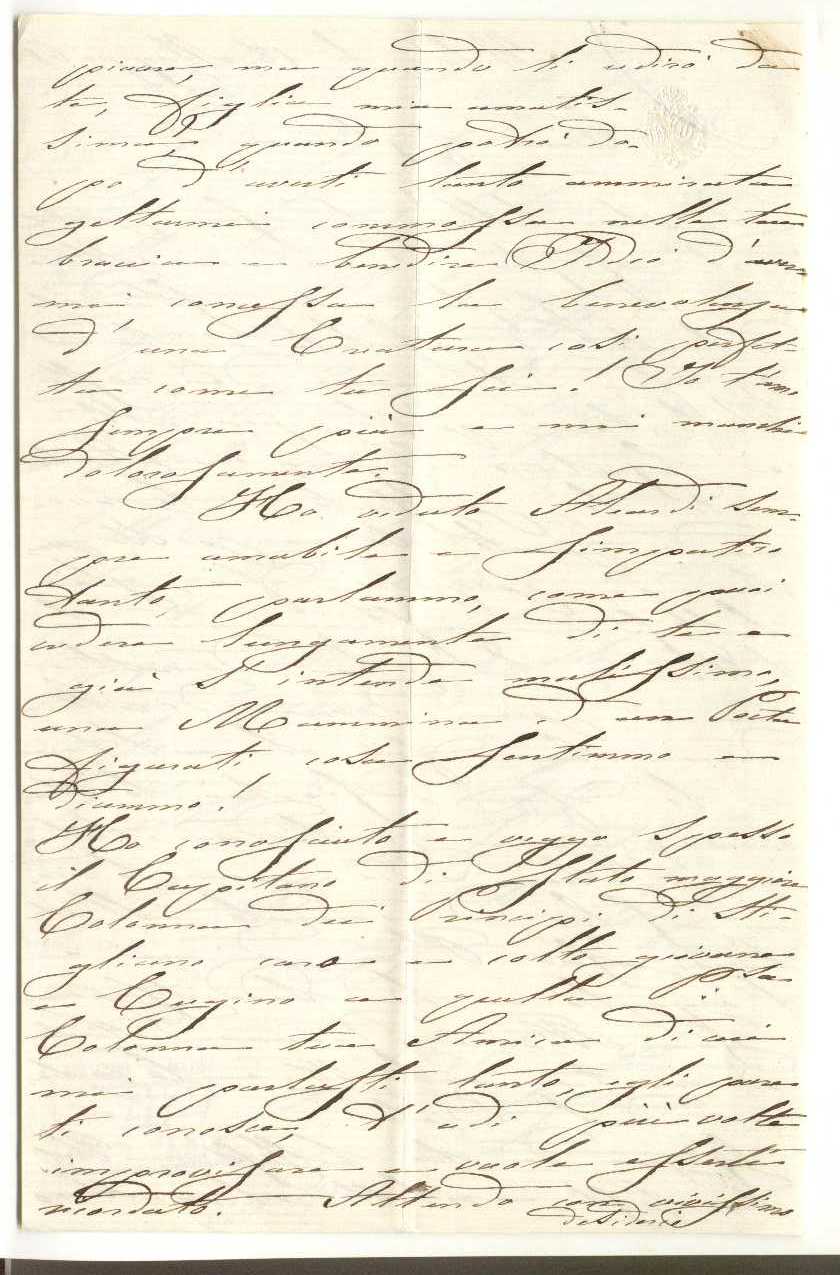 piacere, ma quando ti udirò da
te, Figlia mia amatis-
sima, quando potrò do-
po d'averti tanto ammirata
gettarmi commossa nelle tue
braccia e benedire Iddio d'aver-
mi concessa la benevolenza
d'una Creatura così perfet-
ta come tu sei! Io t'amo
sempre più e mi manchi
dolorosamente.
Ho veduto Aleardi sem-
pre amabile e simpatico
tanto, parlammo, come puoi
credere lungamente di te e
già s'intende
una Mammina e d un Poeta
figurati cosa sentimmo e
diciammo!
Ho conosciuto e veggo spesso
il Capitano di Stato maggiore
Colonna dei Principi di Sti-
gliano caro e colto giovane
e Cugino a quella Pssa
Colonna tua Amica di cui
mi parlasti tanto, egli pure
ti conosce, t'udì più volte
improvisare e vuole esserti
ricordato. Attendo con vivissimo
desiderio